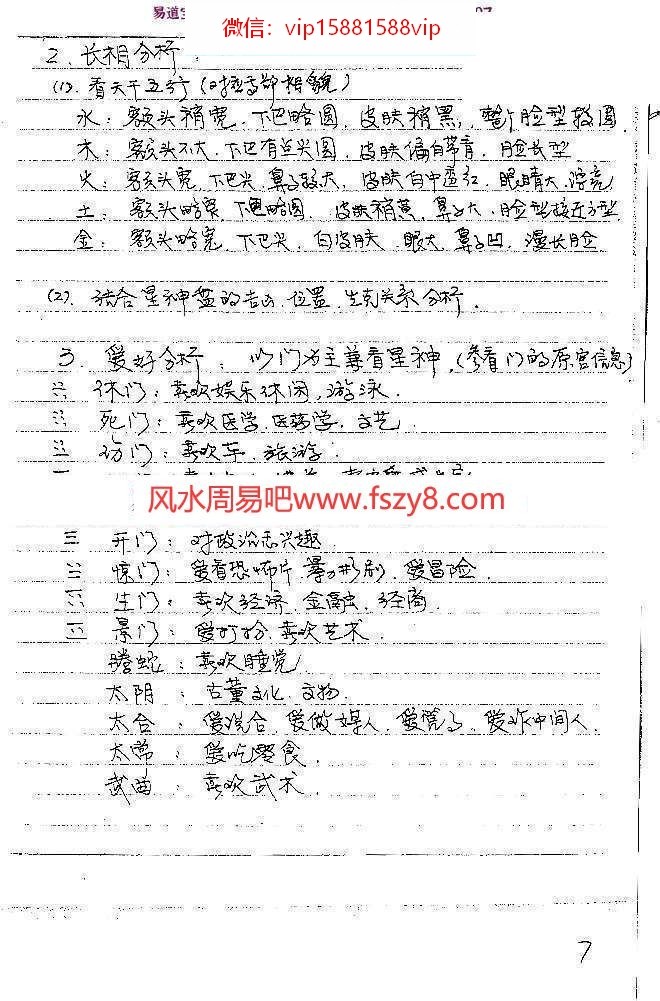 易道
微信：vip15881588vip
2、长相分析：
(1)、看天干五行（对应高部相貌）
水：额头稍宽、下巴略圆、皮肤稍黑，整个脸型较圆
木：额头不大、下巴有点尖圆、皮肤偏白带青、脸长型
火：额头宽、下巴尖、鼻子较大、皮肤白中透红、眼睛大、漂亮
土：额头略宽、下巴略圆、皮肤稍黄、鼻子大、脸型接近方型
金：额头略宽、下巴尖、白皮肤、眼大、鼻子凹、漫长脸
(2)、结合星神盘的吉凶、位置、生克关系分析．
3、爱好分析：以门为主兼看星神．（参看门的原宫信息）
休门：喜欢娱乐休闲，游泳．
死门：喜欢医学、医药学、文艺．
伤门：喜欢车、旅游．
风水周易吧www.fszy8.com
开门：对政治感兴趣
惊门：爱看恐怖片、暴力形刷、爱冒险．
生门：喜欢经济、金融、经商．
景门：爱打扮、喜欢艺术．
腾蛇：喜欢睡觉
太阴：古董文化、文物．
六合：爱混合、爱做媒人、爱凭了、爱作中间人．
太常：爱吃零食．
武曲：喜欢武术．
7